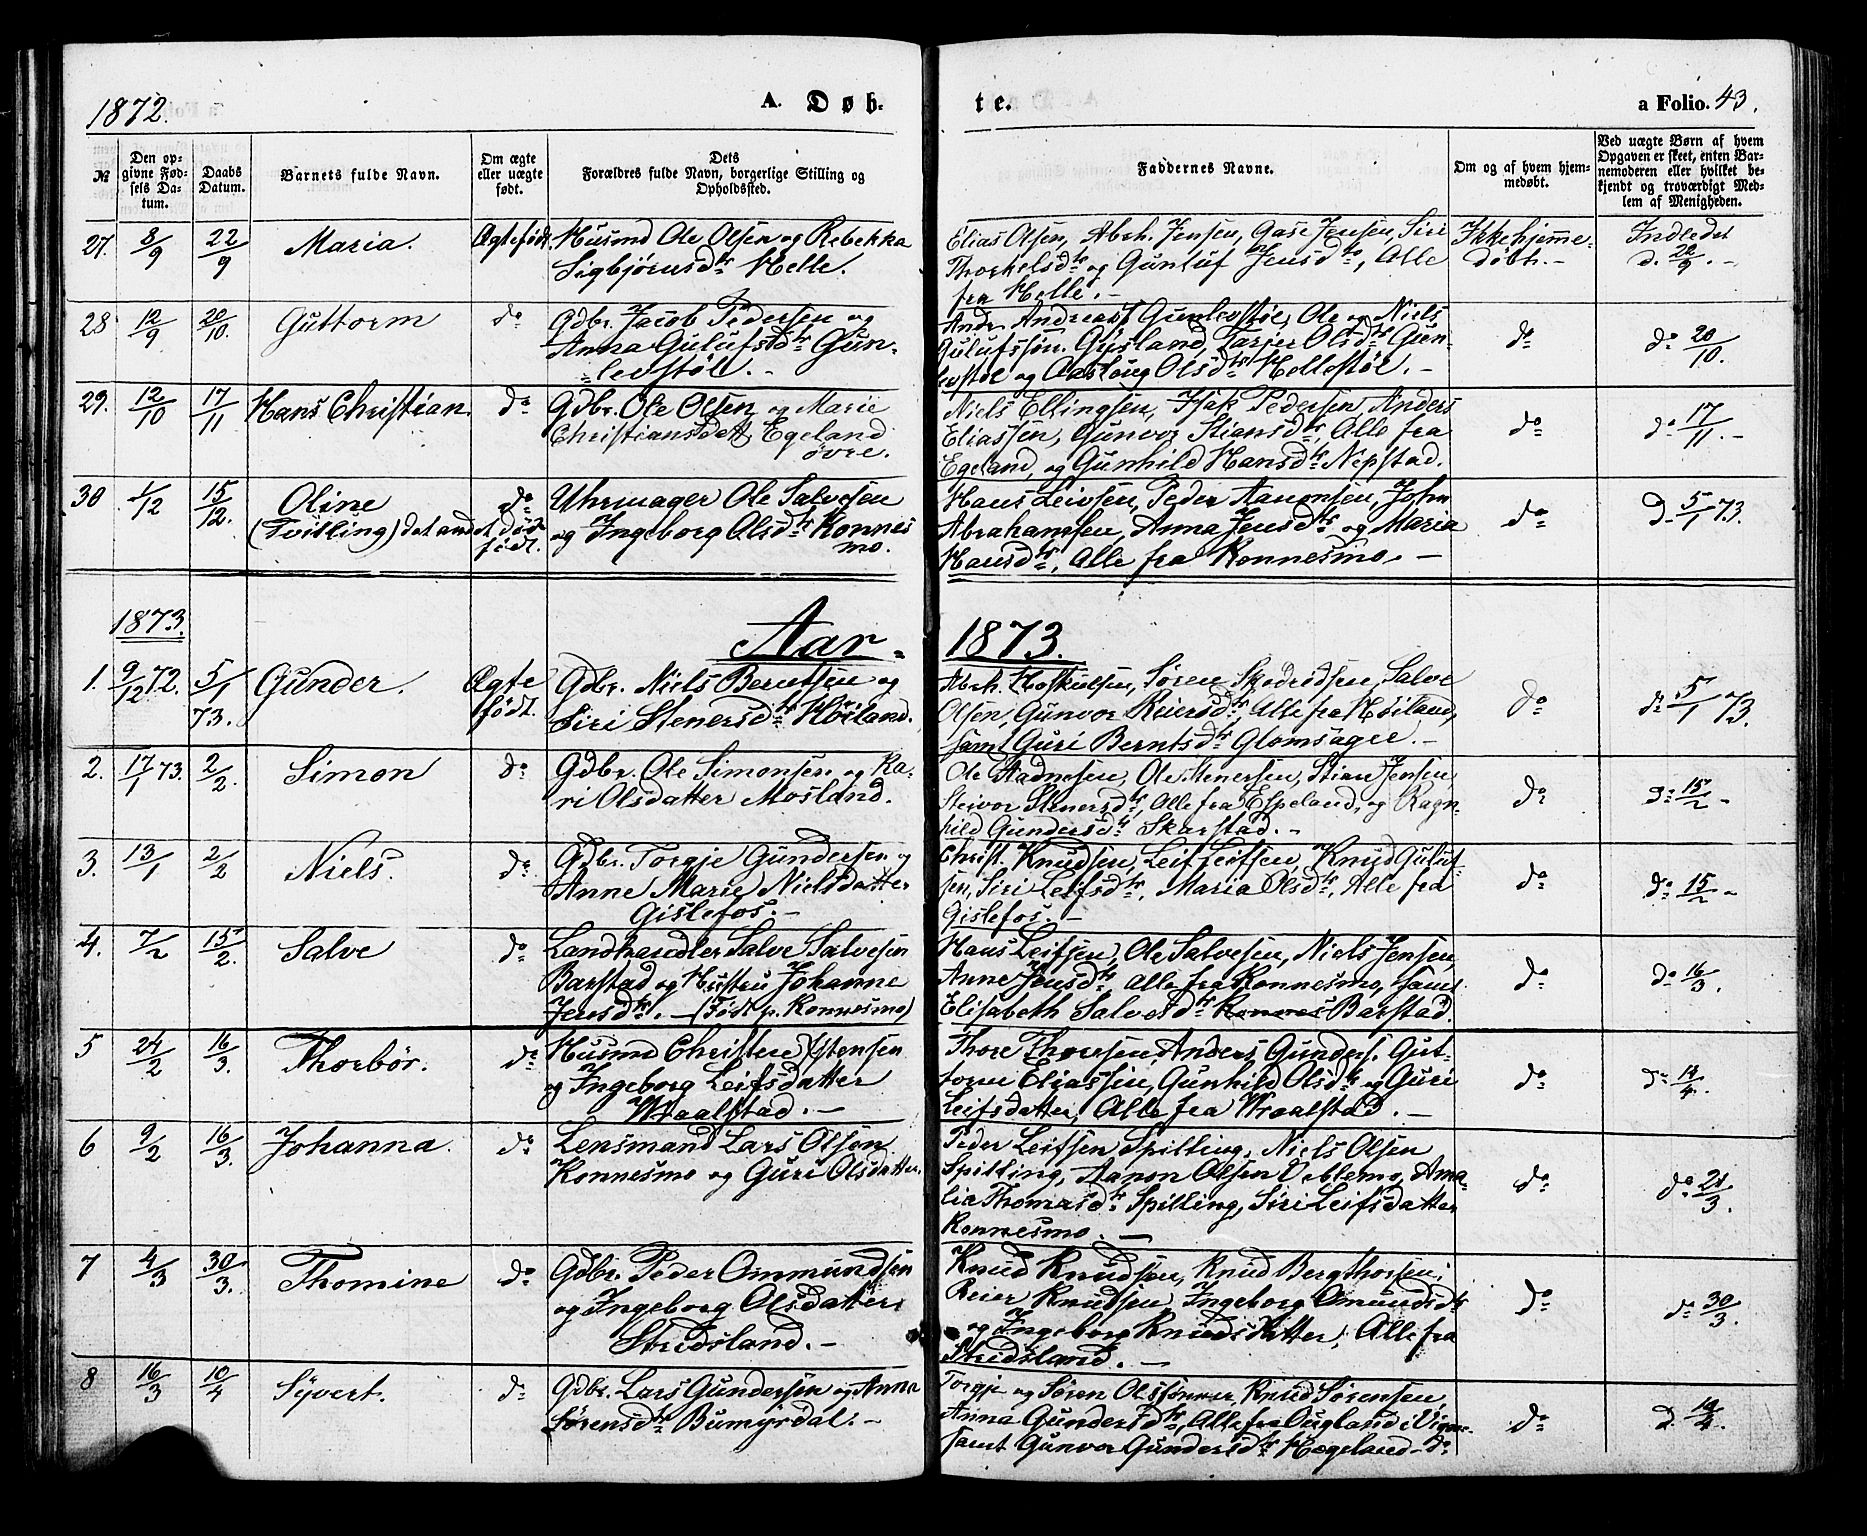 1872.
A. Døb-
te.
a Folio. 43.
№
Den op-
givne Fød-
sels Da-
tum.
Daabs
Datum.
Barnets fulde Navn.
Om ægte
eller uægte
født.
Dets
Forældres fulde Navn, borgerlige Stilling og
Opholdssted.
Faddernes Navne.
Om og af hvem hjem-
medøbt.
Ved uægte Børn af hvem
Opgaven er skeet, enten Bar-
nemoderen eller hvilket be-
kjendt og troværdigt Med-
lem af Menigheden.
27. 8/9 22/9 Maria. Ægtefødt. Husmd Ole Olsen og Rebekka
Sigbjørnsdtr Helle.
Elias Olsen, Abrh. Jensen, Gase Jensen, Siri
Thorkelsdtr og Gunluf Jensdtr, Alle
fra Helle. -
Ikke hjemme-
døbt. -
Indledet
d. 22/9. -
28 12/9 20/10. Guttorm do Gdbr. Jacob Pedersen og
Anna Gulufsdtr Gun-
levstøl. -
Andr. Andreass Gunlevstøl, Ole og Niels
Gulufssøn. Gusland, Tarjer Olsdtr Gun-
levstøl og Aaslaug Olsdtr Hellestøl. -
do
do 20/10.
29. 12/10 17/11 Hans Christian. do Gdbr. Ole Olsen og Marie
Christiansdatt Egeland
øvre.
Niels Ellingsen, Isak Pedersen, Anders
Eliassen, Gunvor Stiansdtr, Alle fra
Egeland, og Gunhild Hansdtr Nepstad.
do
do 17/11. -
30 1/12 15/12. Oline do Uhrmager Ole Salvesen
(Tvilling) det andet død-
født.
og Ingeborg Olsdtr Konnes
mo.
Hans Leivsen, Peder Aanonsen, John
Abrahamsen, Anna Jensdtr og Maria
Hansdtr, Alle fra Konnesmo. -
do
D. 5/1 73.
1873.
Aar-
1873.
1. 9/12 72. 5/1
73.
Gunder. Ægte
født.
Gdbr. Niels Berntsen og
Siri Stenersdtr Høiland.
Abrh. Hoskulsen, Søren Skedridsen, Salve
Olsen, Gunvor Reiersdtr, Alle fra Høiland,
samt Guri Berntsdtr Glomsager. -
do
do 5/1 73.
2. 17/1 73. 2/2. Simon do Gdbr. Ole Simonsen og Ka-
ri Olsdatter Mosland.
Ole Stadnesen, Ole Stenersen, Stian Jensen,
Steivor Stenersdtr, Alle fra Espeland, og Ragn-
hild Gundersdtr Skarstad. -
do
do 15/2 -
3. 13/1 2/2 Niels. do Gdbr. Torgje Gundersen og
Anne Marie Nielsdatter
Gislefos. -
Christ. Knudsen, Leif Leifsen, Knud Guluf-
sen, Siri Leifsdtr, Maria Olsdtr, Alle fra
Gislefos. -
do
do 15/2 -
4. 7/2 15/2. Salve do Landhandler Salve Salvesen
Barstad og Hustru Johanne
Jensdtr. - (Født p. Konnesmo)
Hans Leifsen, Ole Salvesen, Niels Jensen,
Anne Jensdtr, Alle fra Konnesmo, samt
Elisabeth Salvesdtr Konnes Barstad.
do
do 16/3.
5 24/2 16/3. Thorbør. do Husmd Christen Ystensen
og Ingeborg Leifsdatter
Vraalstad. -
Thore Thorsen, Anders Gunders. Gut-
torm Eliassen, Gunhild Olsdtr og Guri
Leifsdatter, Alle fra Vraalstad. -
do
do 14/4.
6 9/2 16/3. Johanna. do Lensmand Lars Olsen
Konnesmo og Guri Olsdatter.
Peder Leifsen Spilling, Niels Olsen
Spilling, Aanon Olsen Veblemo, Ama-
lia Thomasdtr Spilling, Siri Leifsdatter
Konnesmo. -
do
do 21/3.
7 4/3 30/3. Thomine do Gdbr. Peder Ommundsen
og Ingeborg Olsdatter
Stridsland. -
Knud Knudsen, Knud Bergthorsen,
Reier Knudsen, Ingeborg Omundsdtr
og Ingeborg Knudsdatter, Alle fra
Stridsland. -
do
do 30/3.
8 16/3 10/4 Syvert. do Gdbr. Lars Gundersen og Anna
Sørensdtr Bumyrdal. -
Torgje og Søren Olssønner, Knud Sørensen,
Anna Gundersdtr, Alle fra Øugland i Vigm-
samt Gunvor Gundersdtr Hægeland - do
do
D. 10/4.